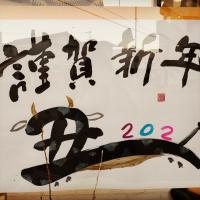 謹賀新年
丑 202